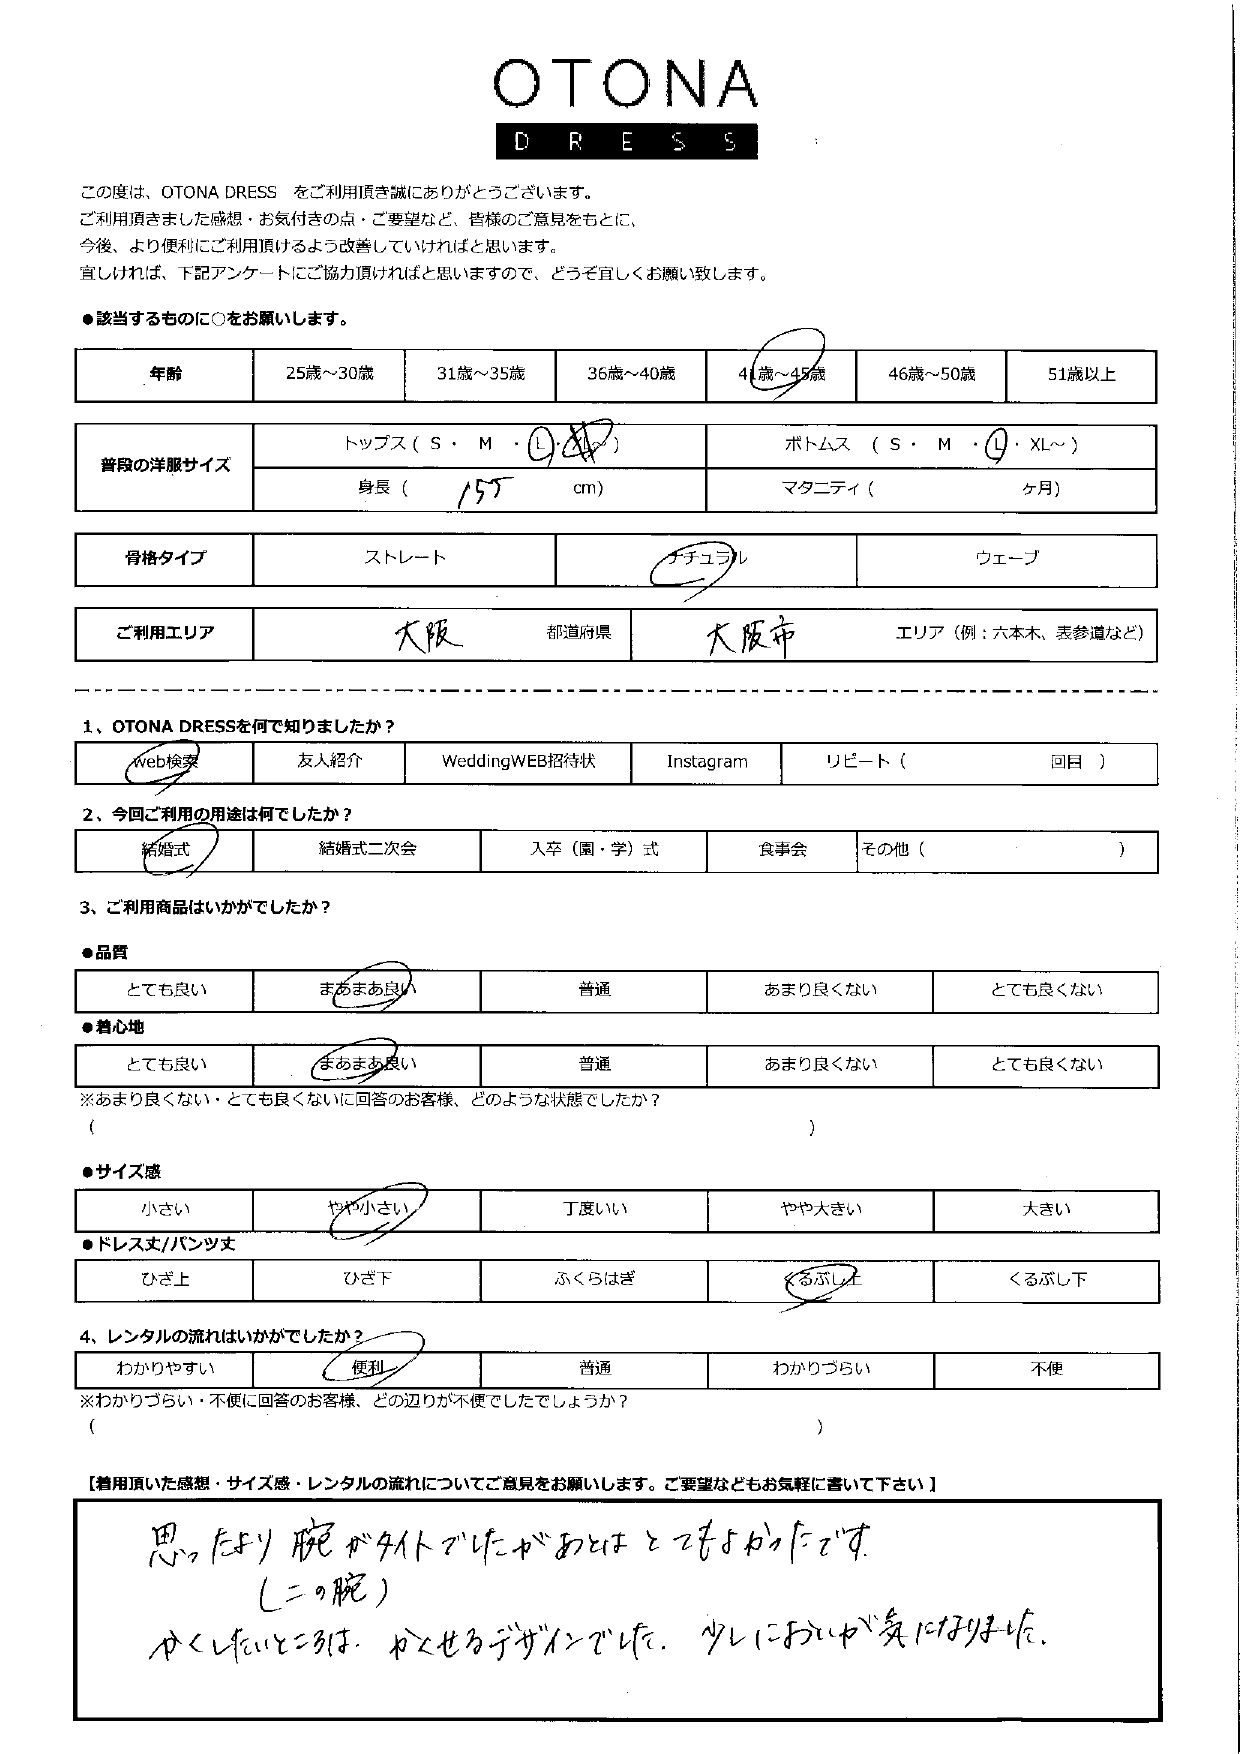 OTONA
DRESS
この度は、OTONA DRESS をご利用頂き誠にありがとうございます。
ご利用頂きました感想・お気付きの点・ご要望など、皆様のご意見をもとに、
今後、より便利にご利用頂けるよう改善していければと思います。
宜しければ、下記アンケートにご協力頂ければと思いますので、どうぞ宜しくお願い致します。
●該当するものに○をお願いします。
年齢 25歳～30歳 31歳～35歳 36歳～40歳 41歳～45歳 46歳～50歳 51歳以上
普段の洋服サイズ トップス ( S ・ M ・ L ・ XL～ ) ボトムス ( S ・ M ・ L ・ XL～ )
身長 ( 155 cm) マタニティ ( ヶ月)
骨格タイプ ストレート ナチュラル ウェーブ
ご利用エリア 大阪 都道府県 大阪市 エリア（例：六本木、表参道など）
1、OTONA DRESSを何で知りましたか？
web検索 友人紹介 WeddingWEB招待状 Instagram リピート ( 回目 )
2、今回ご利用の用途は何でしたか？
結婚式 結婚式二次会 入卒（園・学）式 食事会 その他 ( )
3、ご利用商品はいかがでしたか？
●品質
とても良い まあまあ良い 普通 あまり良くない とても良くない
●着心地
とても良い まあまあ良い 普通 あまり良くない とても良くない
※あまり良くない・とても良くないに回答のお客様、どのような状態でしたか？
( )
●サイズ感
小さい やや小さい 丁度いい やや大きい 大きい
●ドレス丈/パンツ丈
ひざ上 ひざ下 ふくらはぎ くるぶし上 くるぶし下
4、レンタルの流れはいかがでしたか？
わかりやすい 便利 普通 わかりづらい 不便
※わかりづらい・不便に回答のお客様、どの辺りが不便でしたでしょうか？
( )
【着用頂いた感想・サイズ感・レンタルの流れについてご意見をお願いします。ご要望などもお気軽に書いて下さい】
思ったより腕がタイトでしたがあとはとてもよかったです.
(二の腕)
かくしたいところは. かくせるデザインでした. 少しにおいが気になりました.